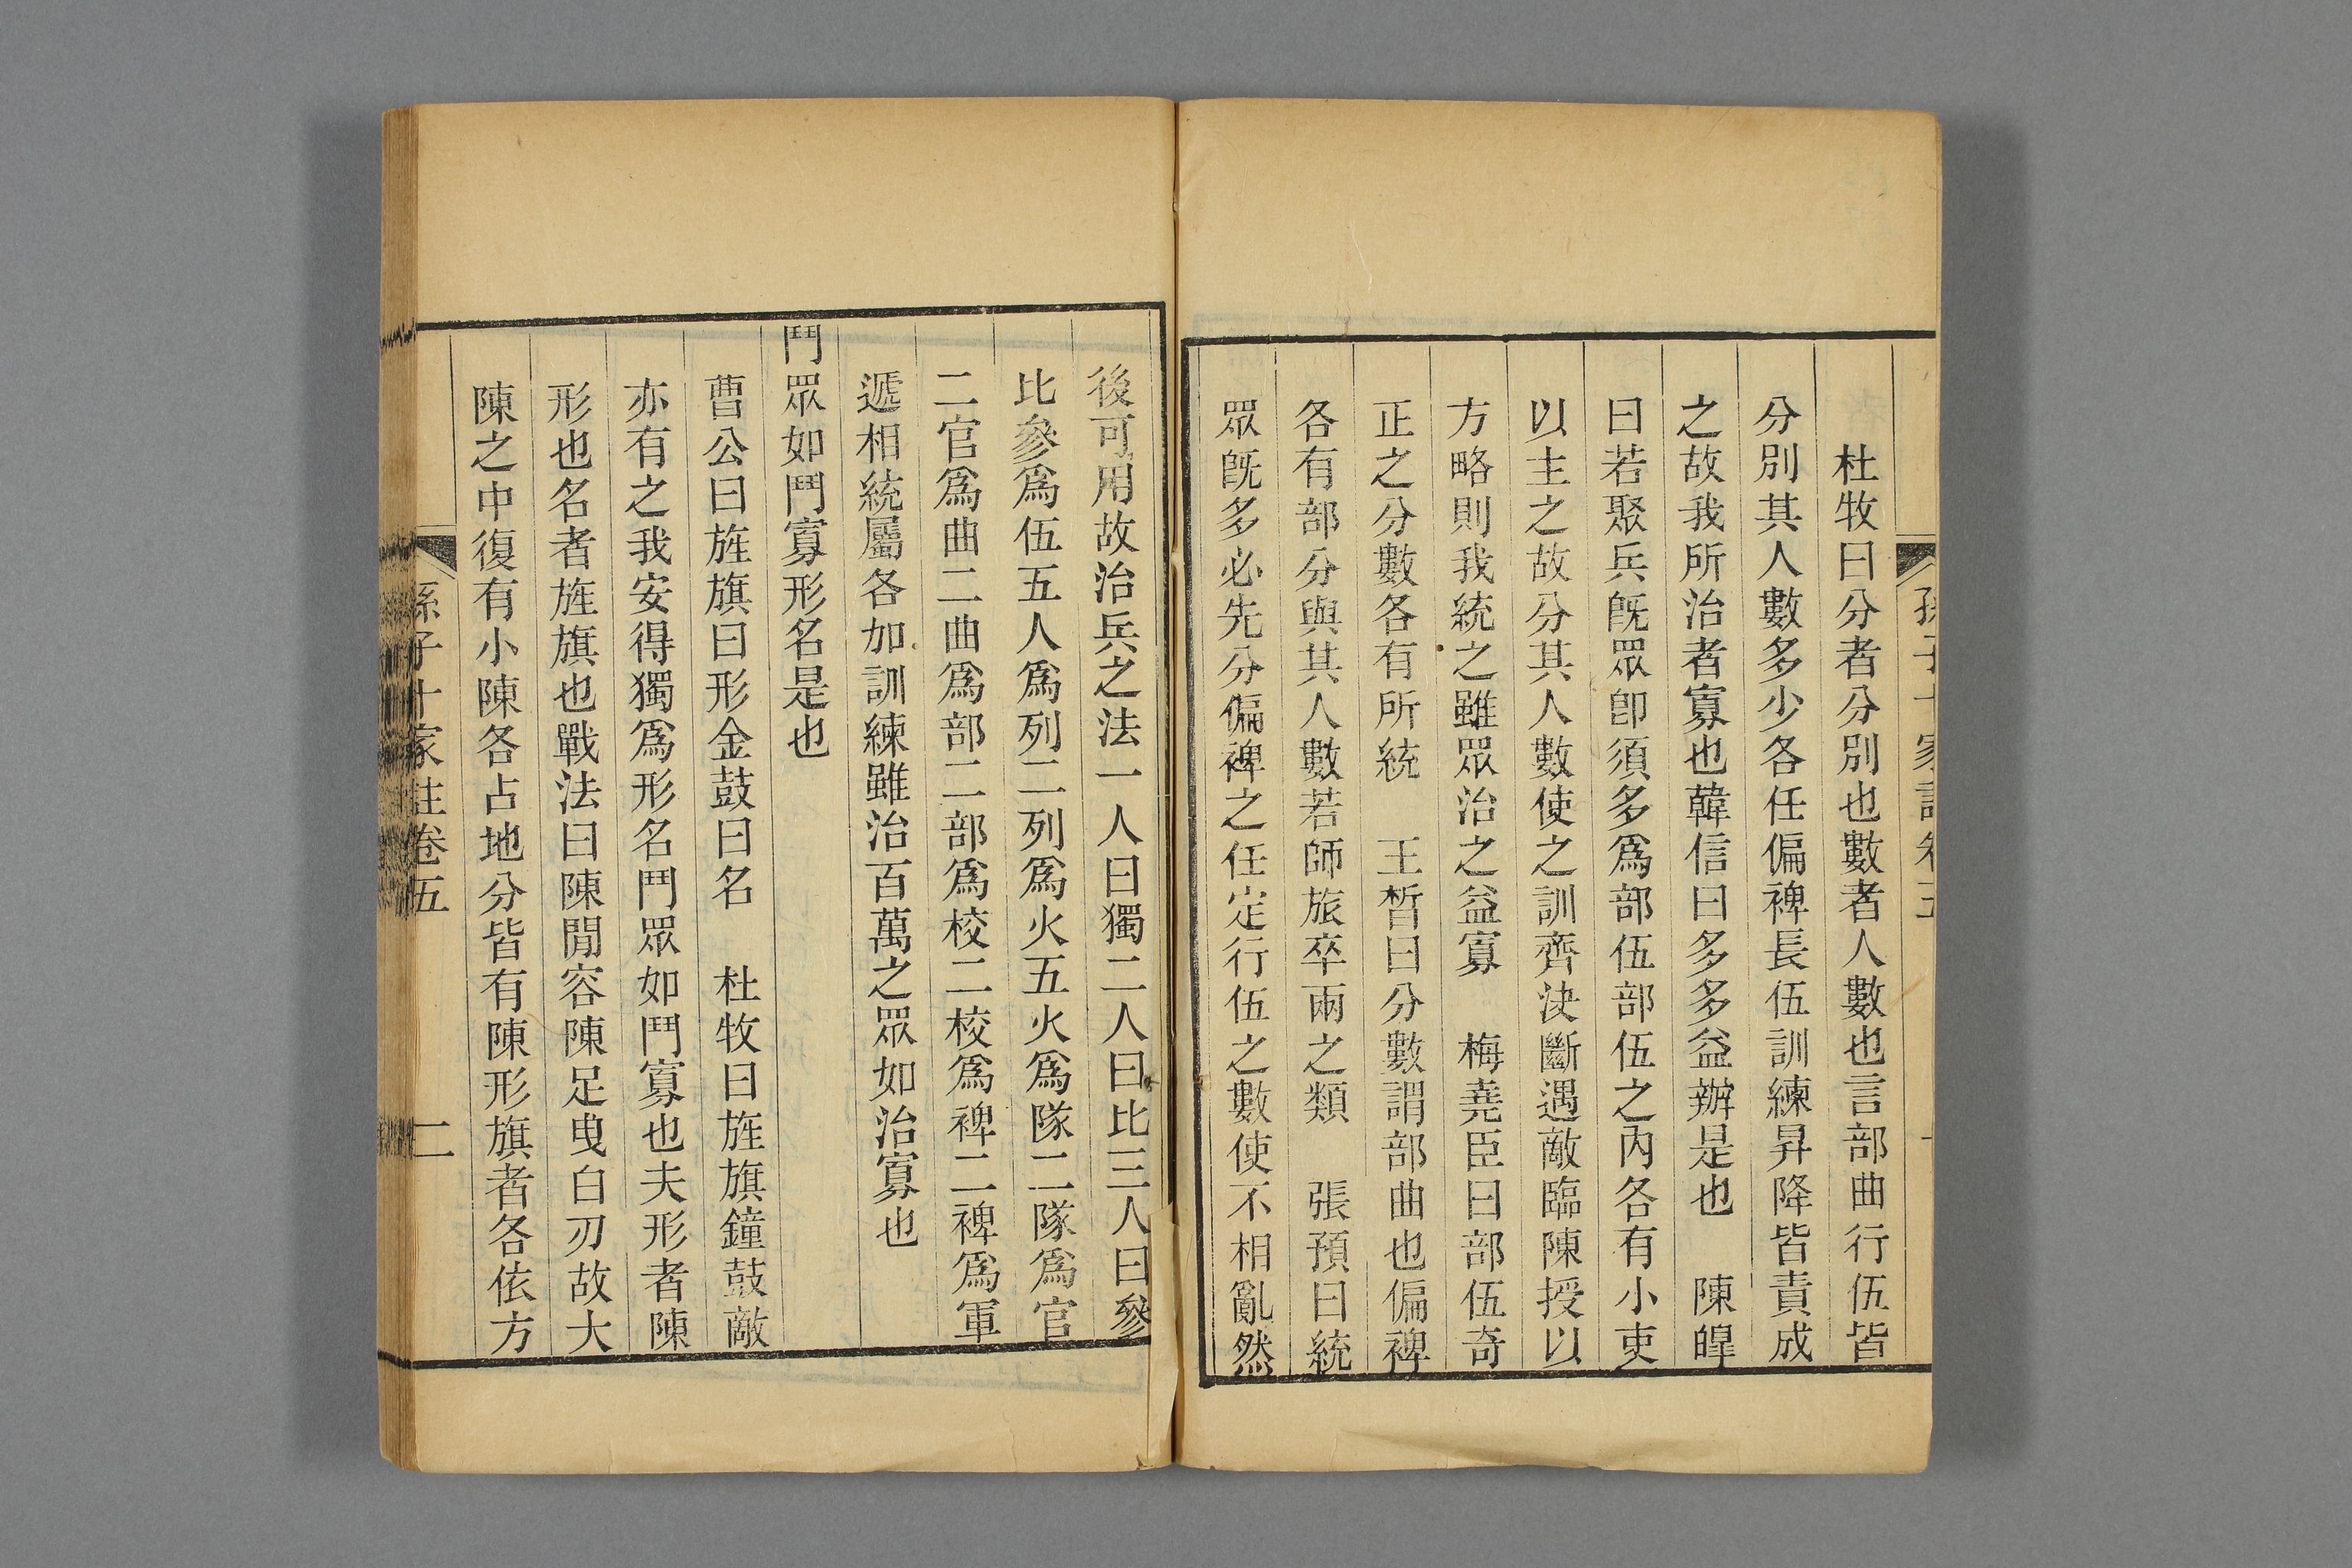 孫子十家註卷五
杜牧曰分者分別也數者人數也言部曲行伍皆
分別其人數多少各任偏裨長伍訓練昇降皆責成
之故我所治者寡也韓信曰多多益辦是也　陳皥
曰若聚兵旣眾卽須多爲部伍部伍之內各有小吏
以主之故分其人數使之訓齊決斷遇敵臨陳授以
方略則我統之雖眾治之益寡　梅堯臣曰部伍奇
正之分數各有所統　王晳曰分數謂部曲也偏裨
各有部分與其人數若師旅卒兩之類　張預曰統
眾旣多必先分偏裨之任定行伍之數使不相亂然
後可用故治兵之法一人曰獨二人曰比三人曰參
比參爲伍五人爲列二列爲火五火爲隊二隊爲官
二官爲曲二曲爲部二部爲校二校爲裨二裨爲軍
遞相統屬各加訓練雖治百萬之眾如治寡也
鬥眾如鬥寡形名是也
曹公曰旌旗曰形金鼓曰名　杜牧曰旌旗鐘鼓敵
亦有之我安得獨爲形名鬥眾如鬥寡也夫形者陳
形也名者旌旗也戰法曰陳閒容陳足曳白刃故大
陳之中復有小陳各占地分皆有陳形旗者各依方
孫子十家註卷五
二